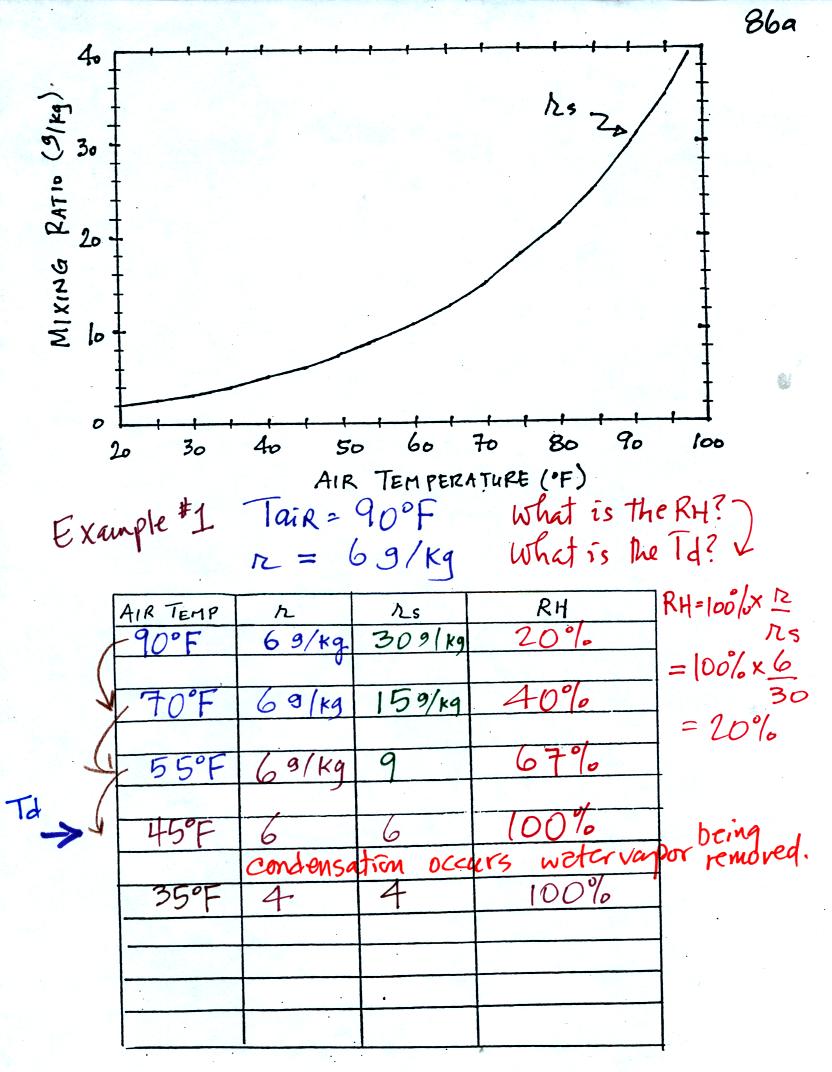 86a
40
30
20
10
0
MIXING RATIO (g/kg).
rs
20 30 40 50 60 70 80 90 100
AIR TEMPERATURE (°F)
Example #1 TAIR = 90°F What is the RH?
r = 6 g/kg What is the Td?
AIR TEMP r rs RH
90°F 6 g/kg 30 g/kg 20%
70°F 6 g/kg 15 g/kg 40%
55°F 6 g/kg 9 67%
Td
45°F 6 6 100%
condensation occurs water vapor being removed.
35°F 4 4 100%
RH = 100% x r/rs
= 100% x 6/30
= 20%